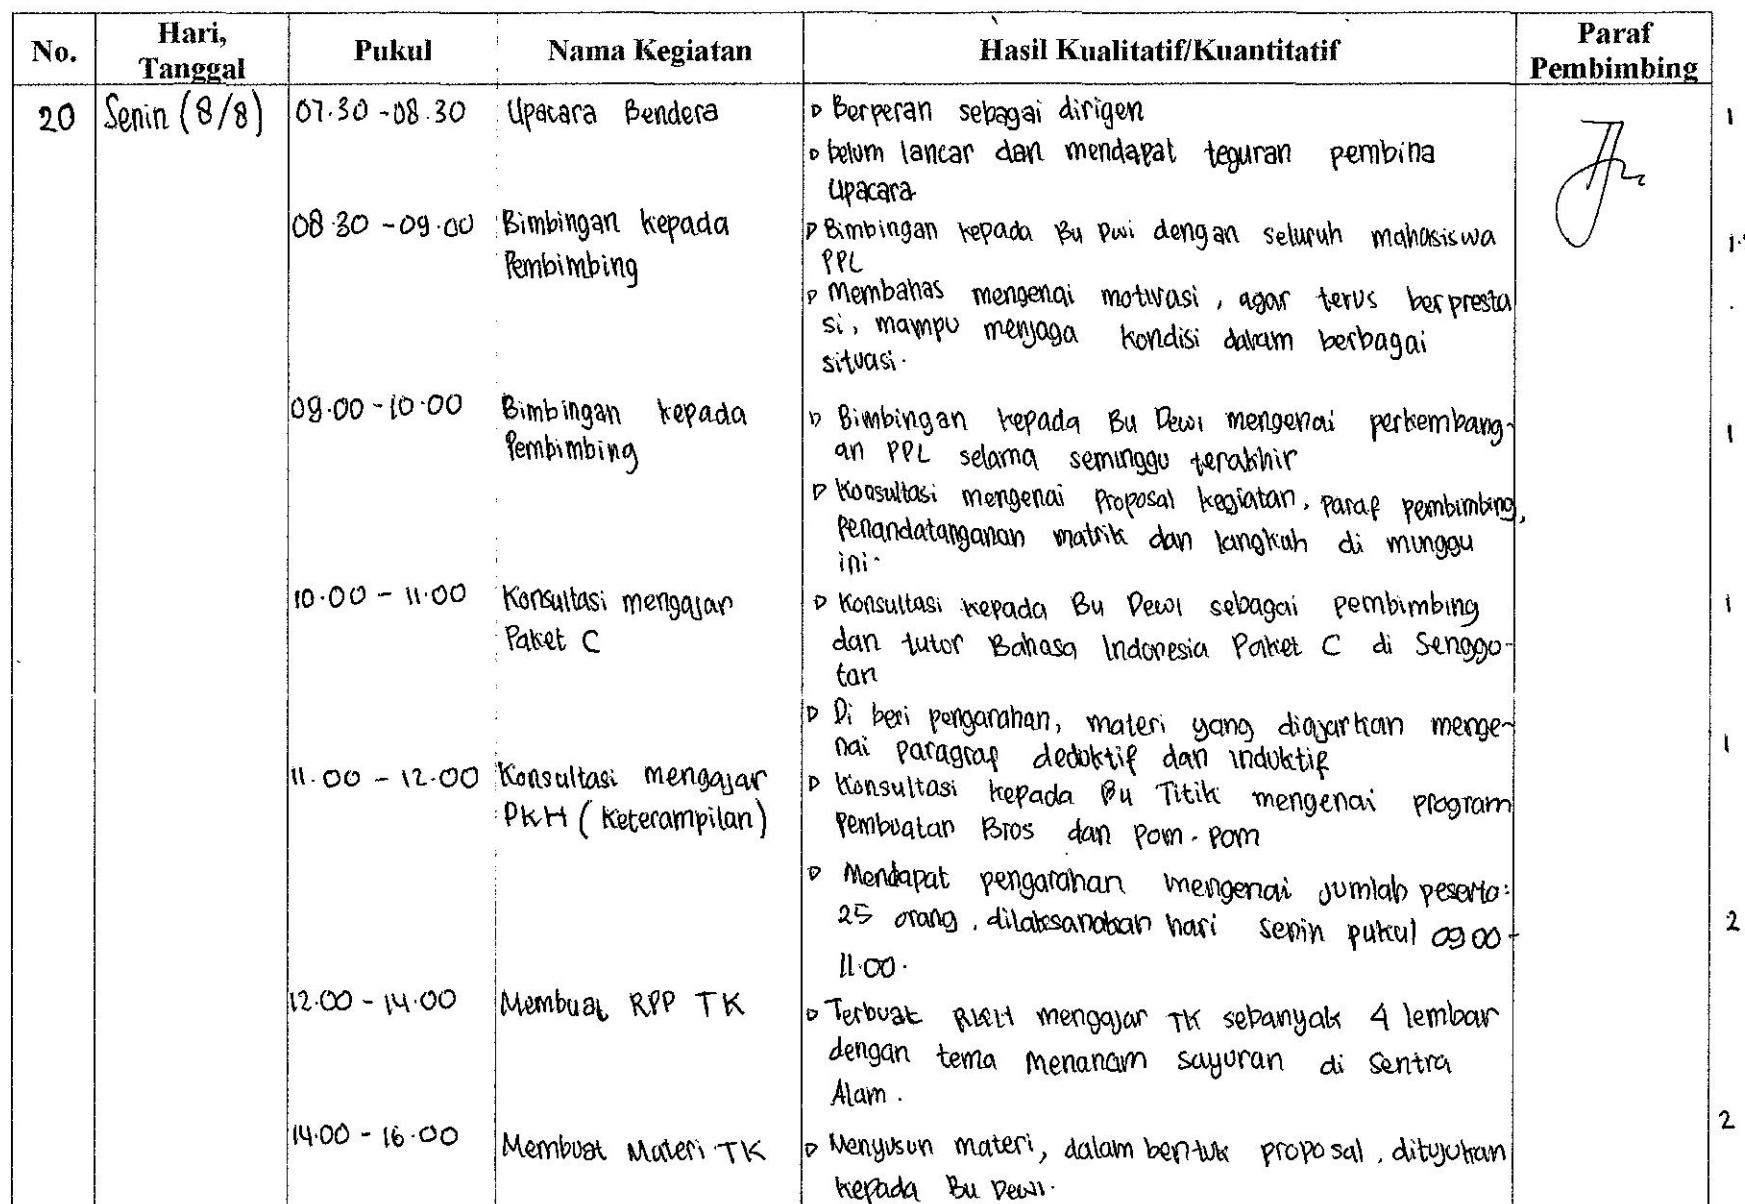 No.
Hari,
Tanggal
Pukul
Nama Kegiatan
Hasil Kualitatif/Kuantitatif
Paraf
Pembimbing
20
Senin (8/8)
07.30 - 08.30
Upacara Bendera
Berperan sebagai dirigen
belum lancar dan mendapat teguran pembina
Upacara
08.30 - 09.00
Bimbingan kepada
Pembimbing
Bimbingan kepada Bu Dwi dengan seluruh mahasiswa
PPL
Membahas mengenai motivasi, agar terus berpresta
si, mampu menjaga kondisi dalam berbagai
situasi.
09.00 - 10.00
Bimbingan kepada
Pembimbing
Bimbingan kepada Bu Dewi mengenai perkembang-
an PPL selama seminggu terakhir
Konsultasi mengenai Proposal kegiatan, paraf pembimbing,
Penandatanganan matrik dan langkah di minggu
ini.
10.00 - 11.00
Konsultasi mengajar
Paket C
Konsultasi kepada Bu Dewi sebagai pembimbing
dan tutor Bahasa Indonesia Paket C di Senggo-
tan
Di beri pengarahan, materi yang diajarkan menge-
nai paragraf deduktif dan induktif
11.00 - 12.00
Konsultasi mengajar
PKH (Keterampilan)
Konsultasi kepada Bu Titik mengenai program
Pembuatan Bros dan Pom-Pom
Mendapat pengarahan mengenai jumlah peserta:
25 orang, dilaksanakan hari Senin pukul 09.00-
11.00.
12.00 - 14.00
Membuat RPP TK
Terbuat RKH mengajar TK sebanyak 4 lembar
dengan tema Menanam sayuran di Sentra
Alam.
14.00 - 16.00
Membuat Materi TK
Menyusun materi, dalam bentuk proposal, ditujukan
kepada Bu Dewi.
1
1
1
1
2
2